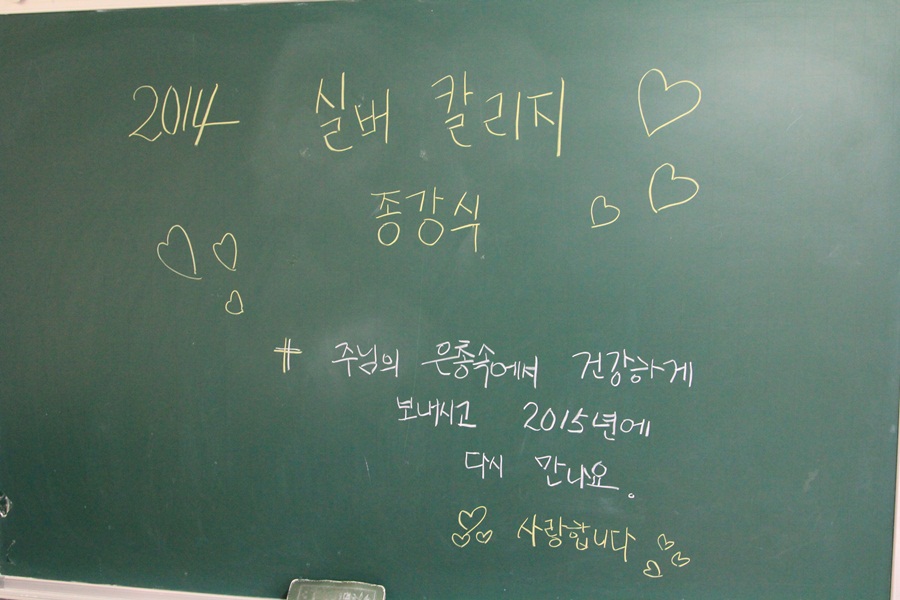 2014 실버 칼리지
종강식
주님의 은총속에서 건강하게
보내시고 2015년에
다시 만나요.
사랑합니다